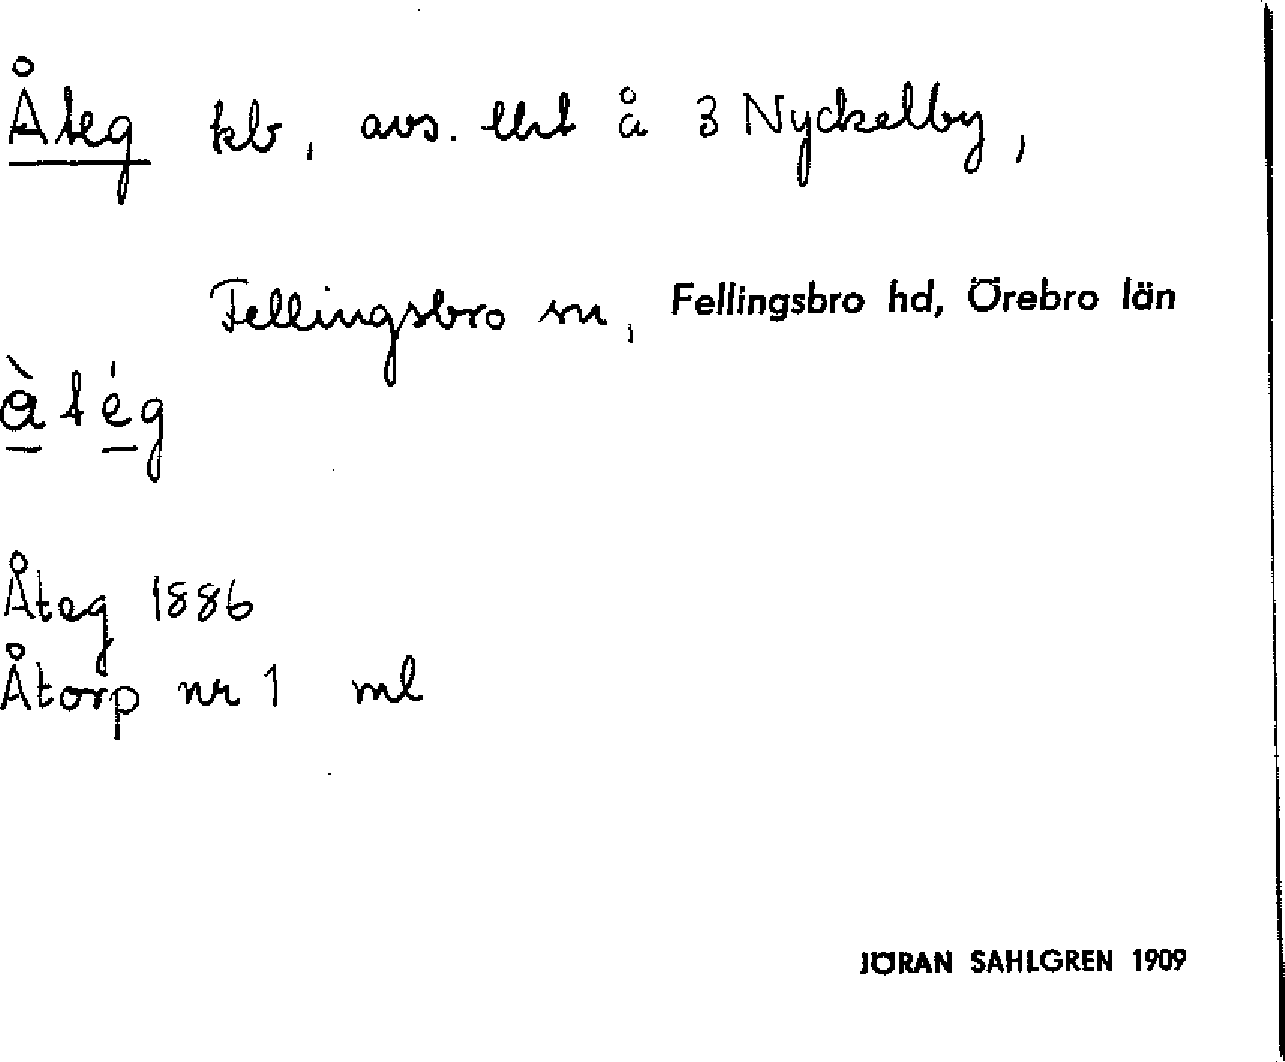 Åteg klr, avs. lht å 3 Nyckelby,
Fellingsbro sn, Fellingsbro hd, Örebro län
àtég
Åteg 1886
Åtorp nr 1 ml
JÖRAN SAHLGREN 1909